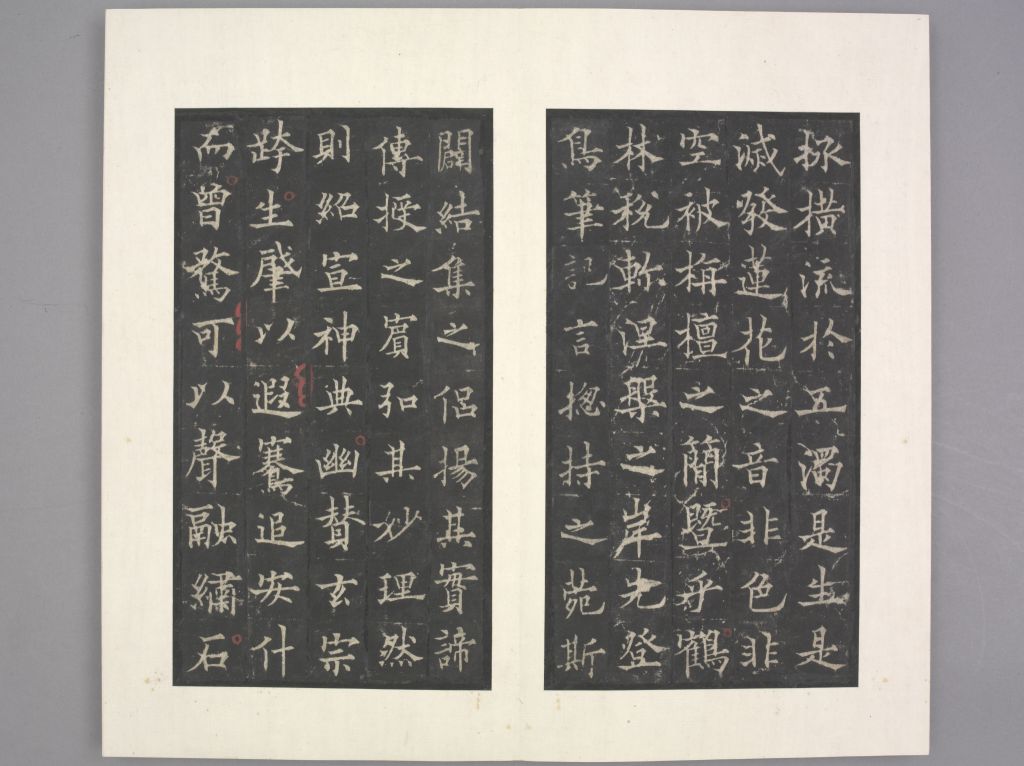 拯橫流於五濁是生是
滅發蓮花之音非色非
空被栴檀之簡暨乎鶴
林稅軫涅槃之岸先登
鳥筆記言揔持之菀斯
闢結集之侶揚其實諦
傳授之賓弘其妙理然
則紹宣神典幽賛玄宗
跨生肇以遐騫追安什
而曾騖可以聲融繡石